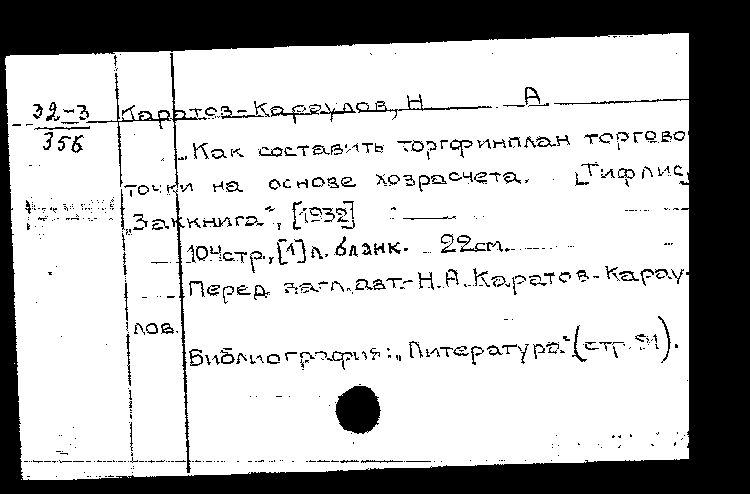 32-3 Каратов-Караулов, Н А
356
„Как составить торгфинплан торгово
точки на основе хозрасчета. [Тифлис]
„Заккнига“, [1932]
104стр., [1]л. бланк. 22см.
Перед загл. авт.- Н.А. Каратов-Карау-
лов.
Библиография: „Литература“ (стр. 91).